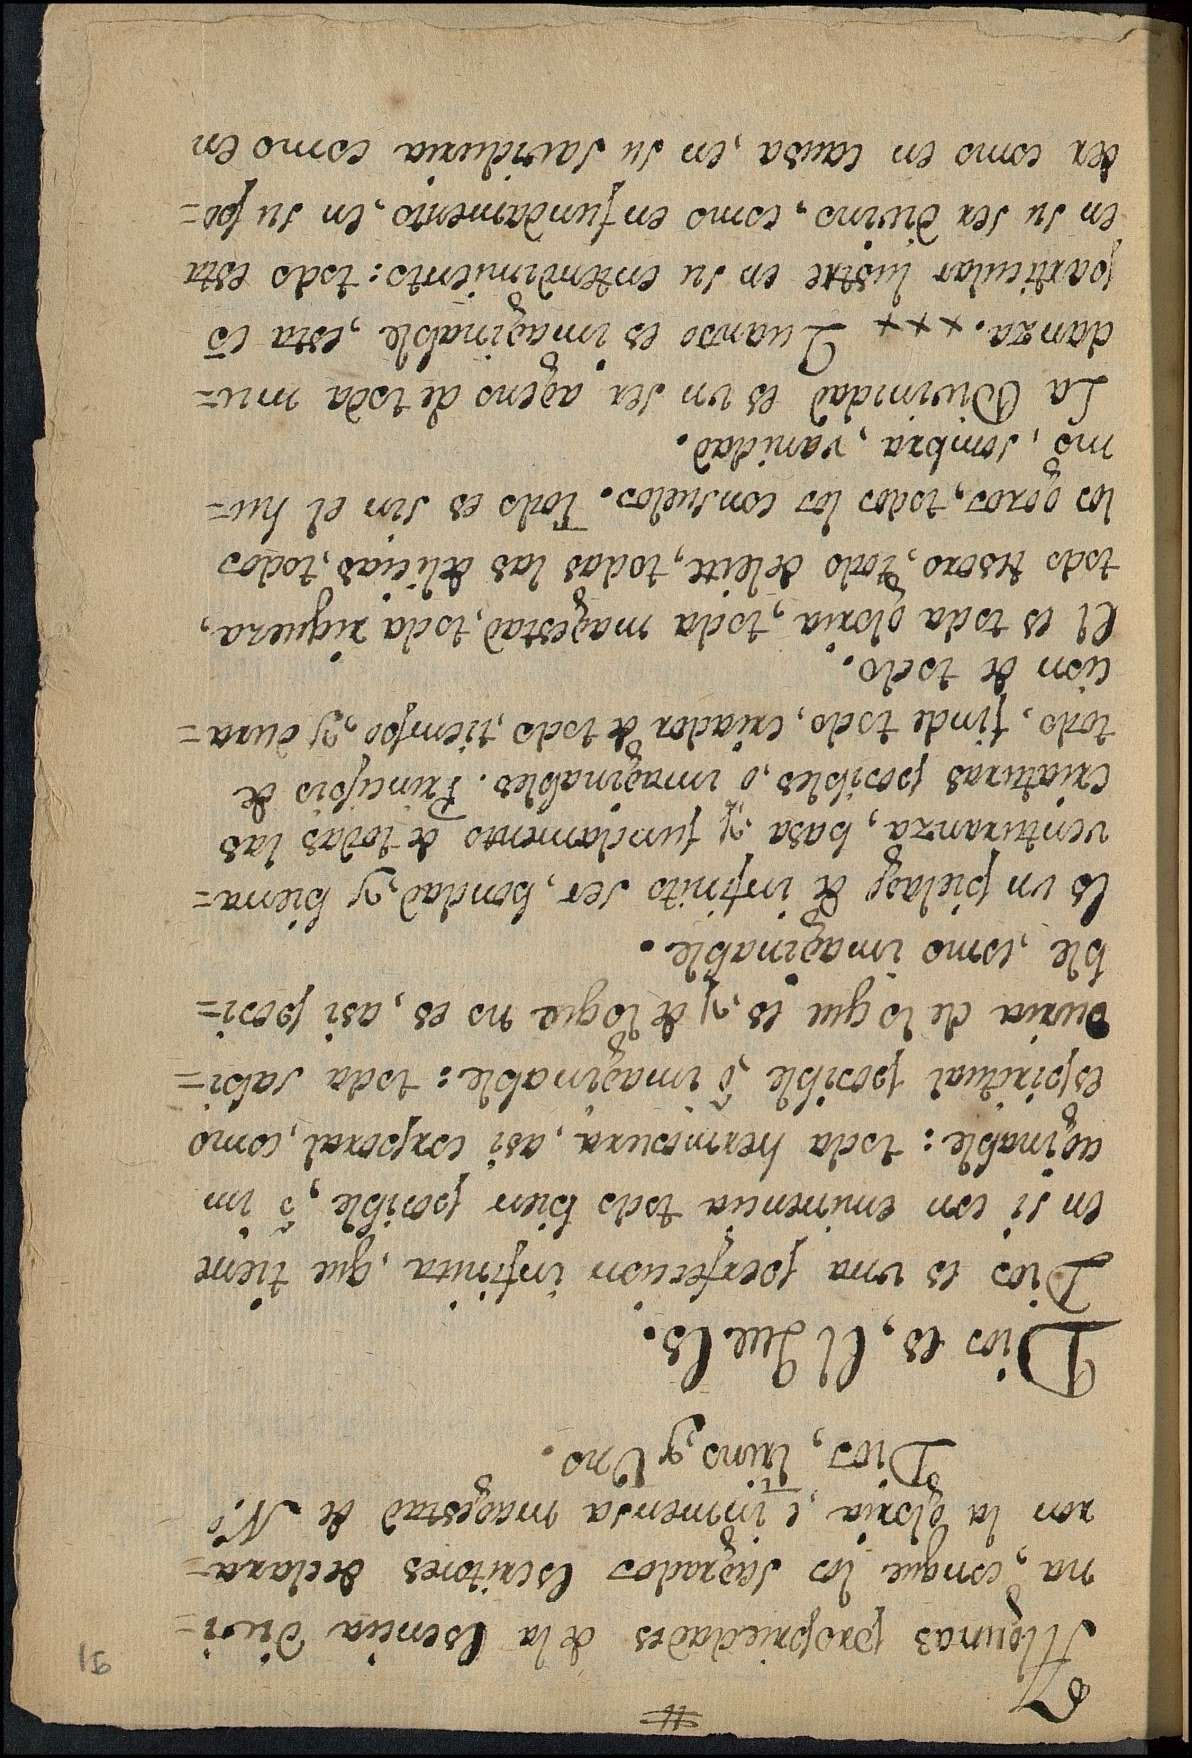 11
91
Algunas propriedades de la Esencia Divi=
na, conque los sagrados Escritores declara=
ron la gloria, e inmensa magestad de N.
Dios, trino, y Uno.
Dios es, El Que Es.
Dios es vna perfeccion infinita, que tiene
en si con eminencia todo bien posible, ò im
aginable: toda hermosura, asi corporal, como
espiritual posible ò imaginable: toda sabi=
duria de lo que es, y de loque no es, asi posi=
ble, como imaginable.
Es vn pielago de infinito ser, bondad, y biena=
venturanza, basa y fundamento de todas las
criaturas posibles, o imaginables. Principio de
todo, fin de todo, criador de todo, tiempo, y dura=
cion de todo.
El es toda gloria, toda magestad, toda riqueza,
todo tesoro, todo deleite, todas las delicias, todos
los gozos, todos los consuelos. Todo es sin el hu=
mo, sombra, vanidad.
La Divinidad es vn ser ageno de toda mu=
danza. +++ Quanto es imaginable, esta cõ
particular lustre en su entendimiento: todo esta
en su ser divino, como en fundamento, en su po=
der como en causa, en su saviduria como en